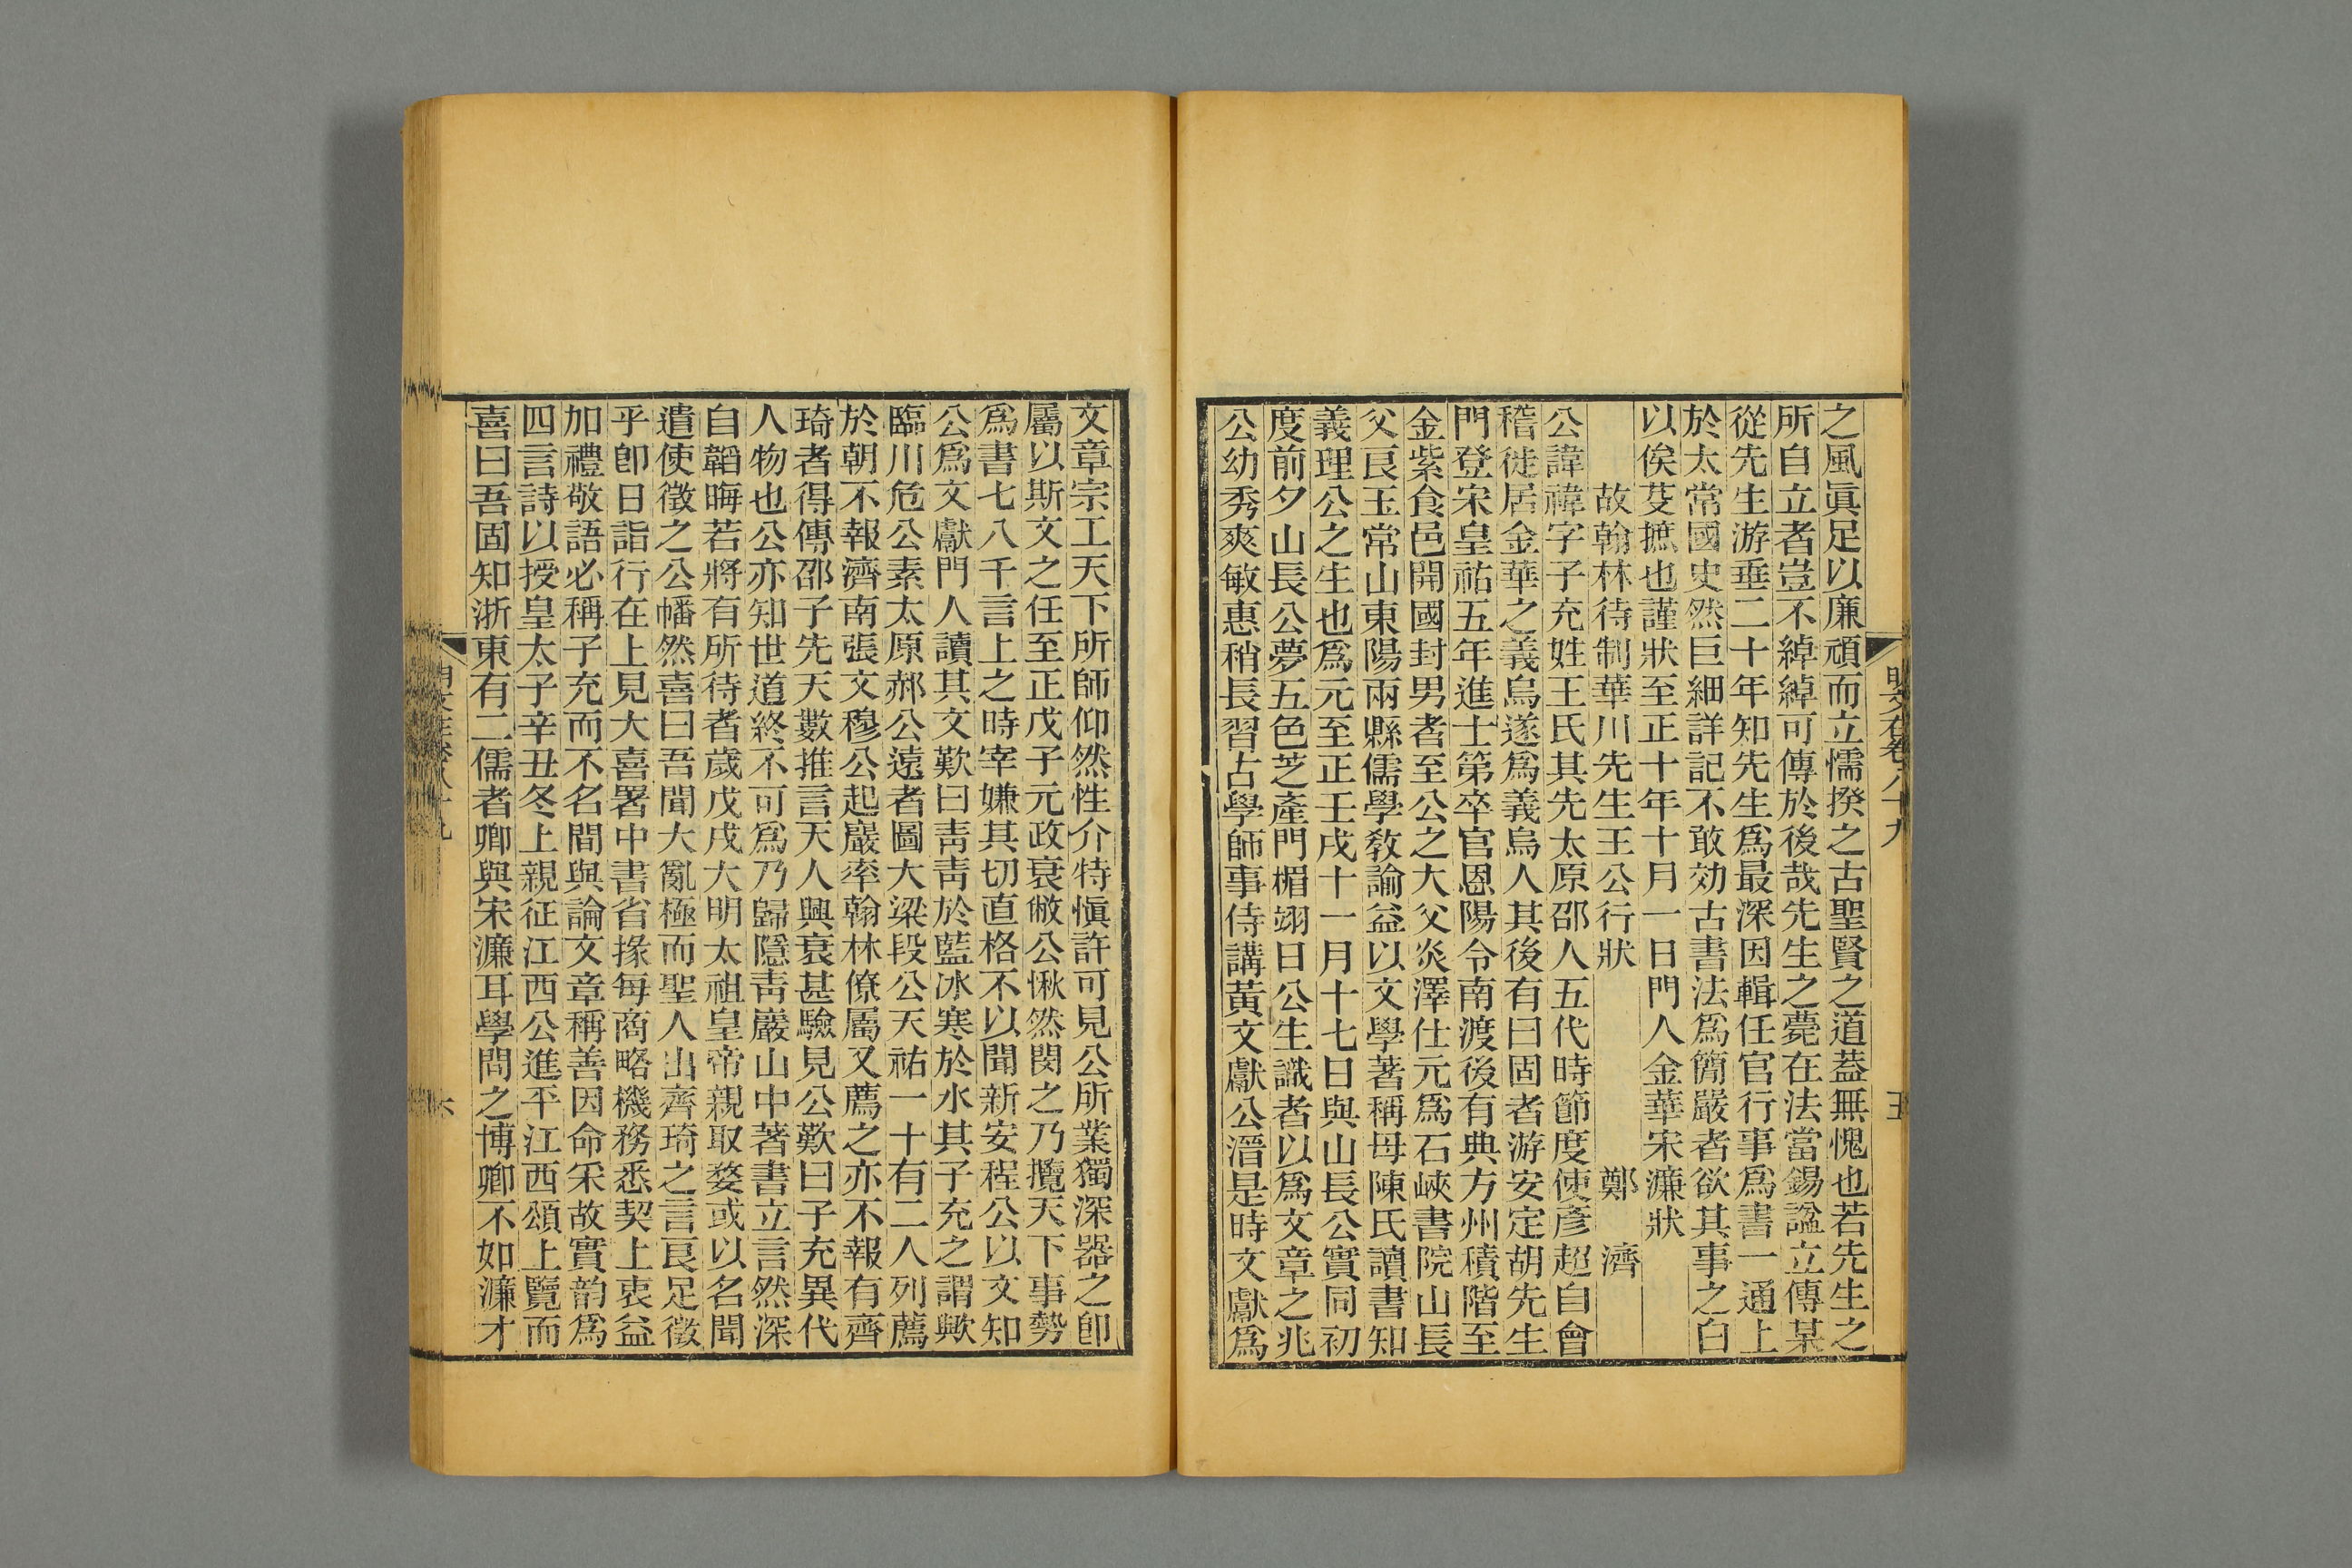 之風眞足以廉頑而立懦揆之古聖賢之道葢無愧也若先生之
所自立者豈不綽綽可傳於後哉先生之薨在法當錫諡立傳某
從先生游垂二十年知先生爲最深因輯任官行事爲書一通上
於太常國史然巨細詳記不敢効古書法爲簡嚴者欲其事之白
以俟芟摭也謹狀至正十年十月一日門人金華宋濂狀
故翰林待制華川先生王公行狀 鄭 濟
公諱褘字子充姓王氏其先太原邵人五代時節度使彥超自會
稽徙居金華之義烏遂爲義烏人其後有曰固者游安定胡先生
門登宋皇祐五年進士第卒官恩陽令南渡後有典方州積階至
金紫食邑開國封男者至公之大父炎澤仕元爲石峽書院山長
父良玉常山東陽兩縣儒學敎諭益以文學著稱母陳氏讀書知
義理公之生也爲元至正壬戌十一月十七日與山長公實同初
度前夕山長公夢五色芝產門楣翊日公生識者以爲文章之兆
公幼秀爽敏惠稍長習古學師事侍講黃文獻公溍是時文獻爲
明文在卷八十九
五
文章宗工天下所師仰然性介特愼許可見公所業獨深器之卽
屬以斯文之任至正戊子元政衰敝公愀然閔之乃攬天下事勢
爲書七八千言上之時宰嫌其切直格不以聞新安程公以文知
公爲文獻門人讀其文歎曰靑靑於藍冰寒於水其子充之謂歟
臨川危公素太原郝公遠者圖大梁段公天祐一十有二人列薦
於朝不報濟南張文穆公起巖率翰林僚屬又薦之亦不報有齊
琦者得傳邵子先天數推言天人興衰甚驗見公歎曰子充異代
人物也公亦知世道終不可爲乃歸隱靑巖山中著書立言然深
自韜晦若將有所待者歲戊戌大明太祖皇帝親取婺或以名聞
遣使徵之公幡然喜曰吾聞大亂極而聖人出齊琦之言良足徵
乎卽日詣行在上見大喜署中書省掾每商略機務悉契上衷益
加禮敬語必稱子充而不名間與論文章稱善因命采故實韵爲
四言詩以授皇太子辛丑冬上親征江西公進平江西頌上覽而
喜曰吾固知浙東有二儒者卿與宋濂耳學問之博卿不如濂才
六